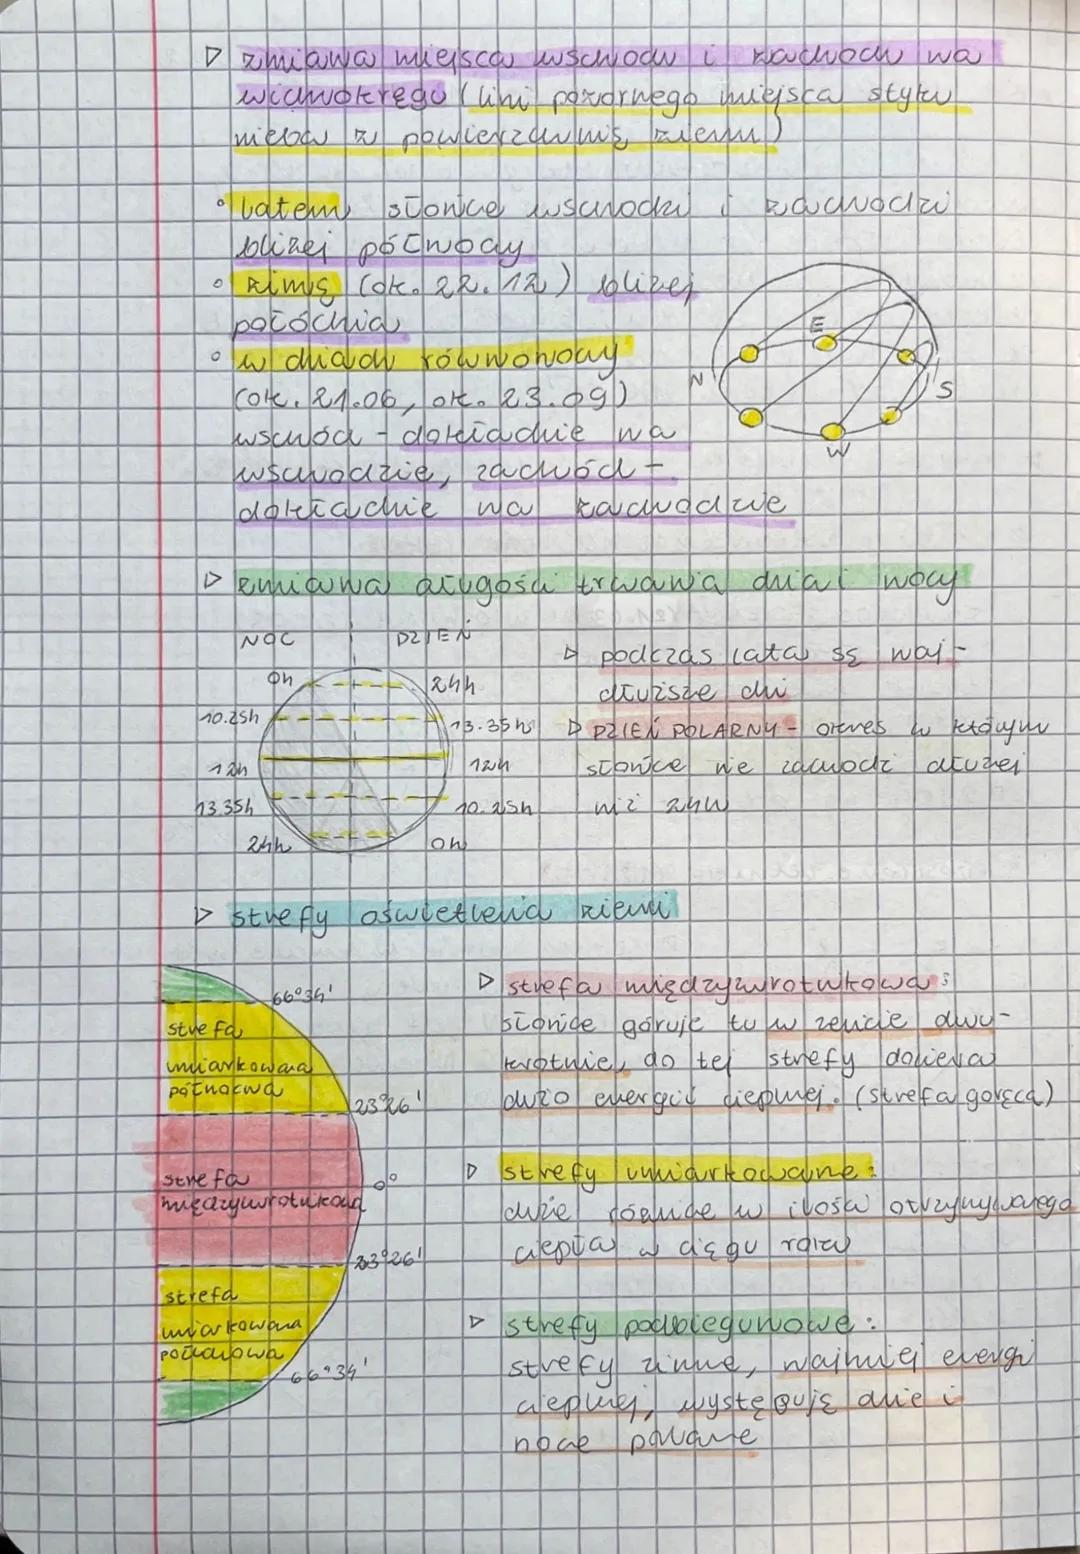 ▷ zmiana miejsca wschodu i zachodu na
widnokręgu (lini pozornego miejsca styku
nieba z powierzchnią ziemi)
• latem słońce wschodzi i zachodzi
bliżej północy
• zimą (ok. 22.12) bliżej
południa
• w dniach równonocy
(ok. 21.06, ok. 23.09)
wschód - dokładnie na
wschodzie, zachód -
dokładnie na zachodzie
E
N
S
W
▷ zmiana długości trwania dnia i nocy
NOC DZIEŃ
0h 24h
10.25h 13.35h
12h 12h
13.35h 10.25h
24h 0h
▷ podczas lata są naj-
dłuższe dni
▷ DZIEŃ POLARNY - okres w którym
słońce nie zachodzi dłużej
niż 24h
▷ strefy oświetlenia ziemi
66°34'
strefa
umiarkowana
północna
23°26'
strefa
międzyzwrotnikowa
0°
23°26'
strefa
umiarkowana
południowa
66°34'
▷ strefa międzyzwrotnikowa:
słońce góruje tu w zenicie dwu-
krotnie, do tej strefy dociera
dużo energii cieplnej. (strefa gorąca)
▷ strefy umiarkowane:
duże różnice w ilości otrzymywanego
ciepła w ciągu roku
▷ strefy podbiegunowe:
strefy zimne, najmniej energi
cieplnej, występują dnie i
noce polarne